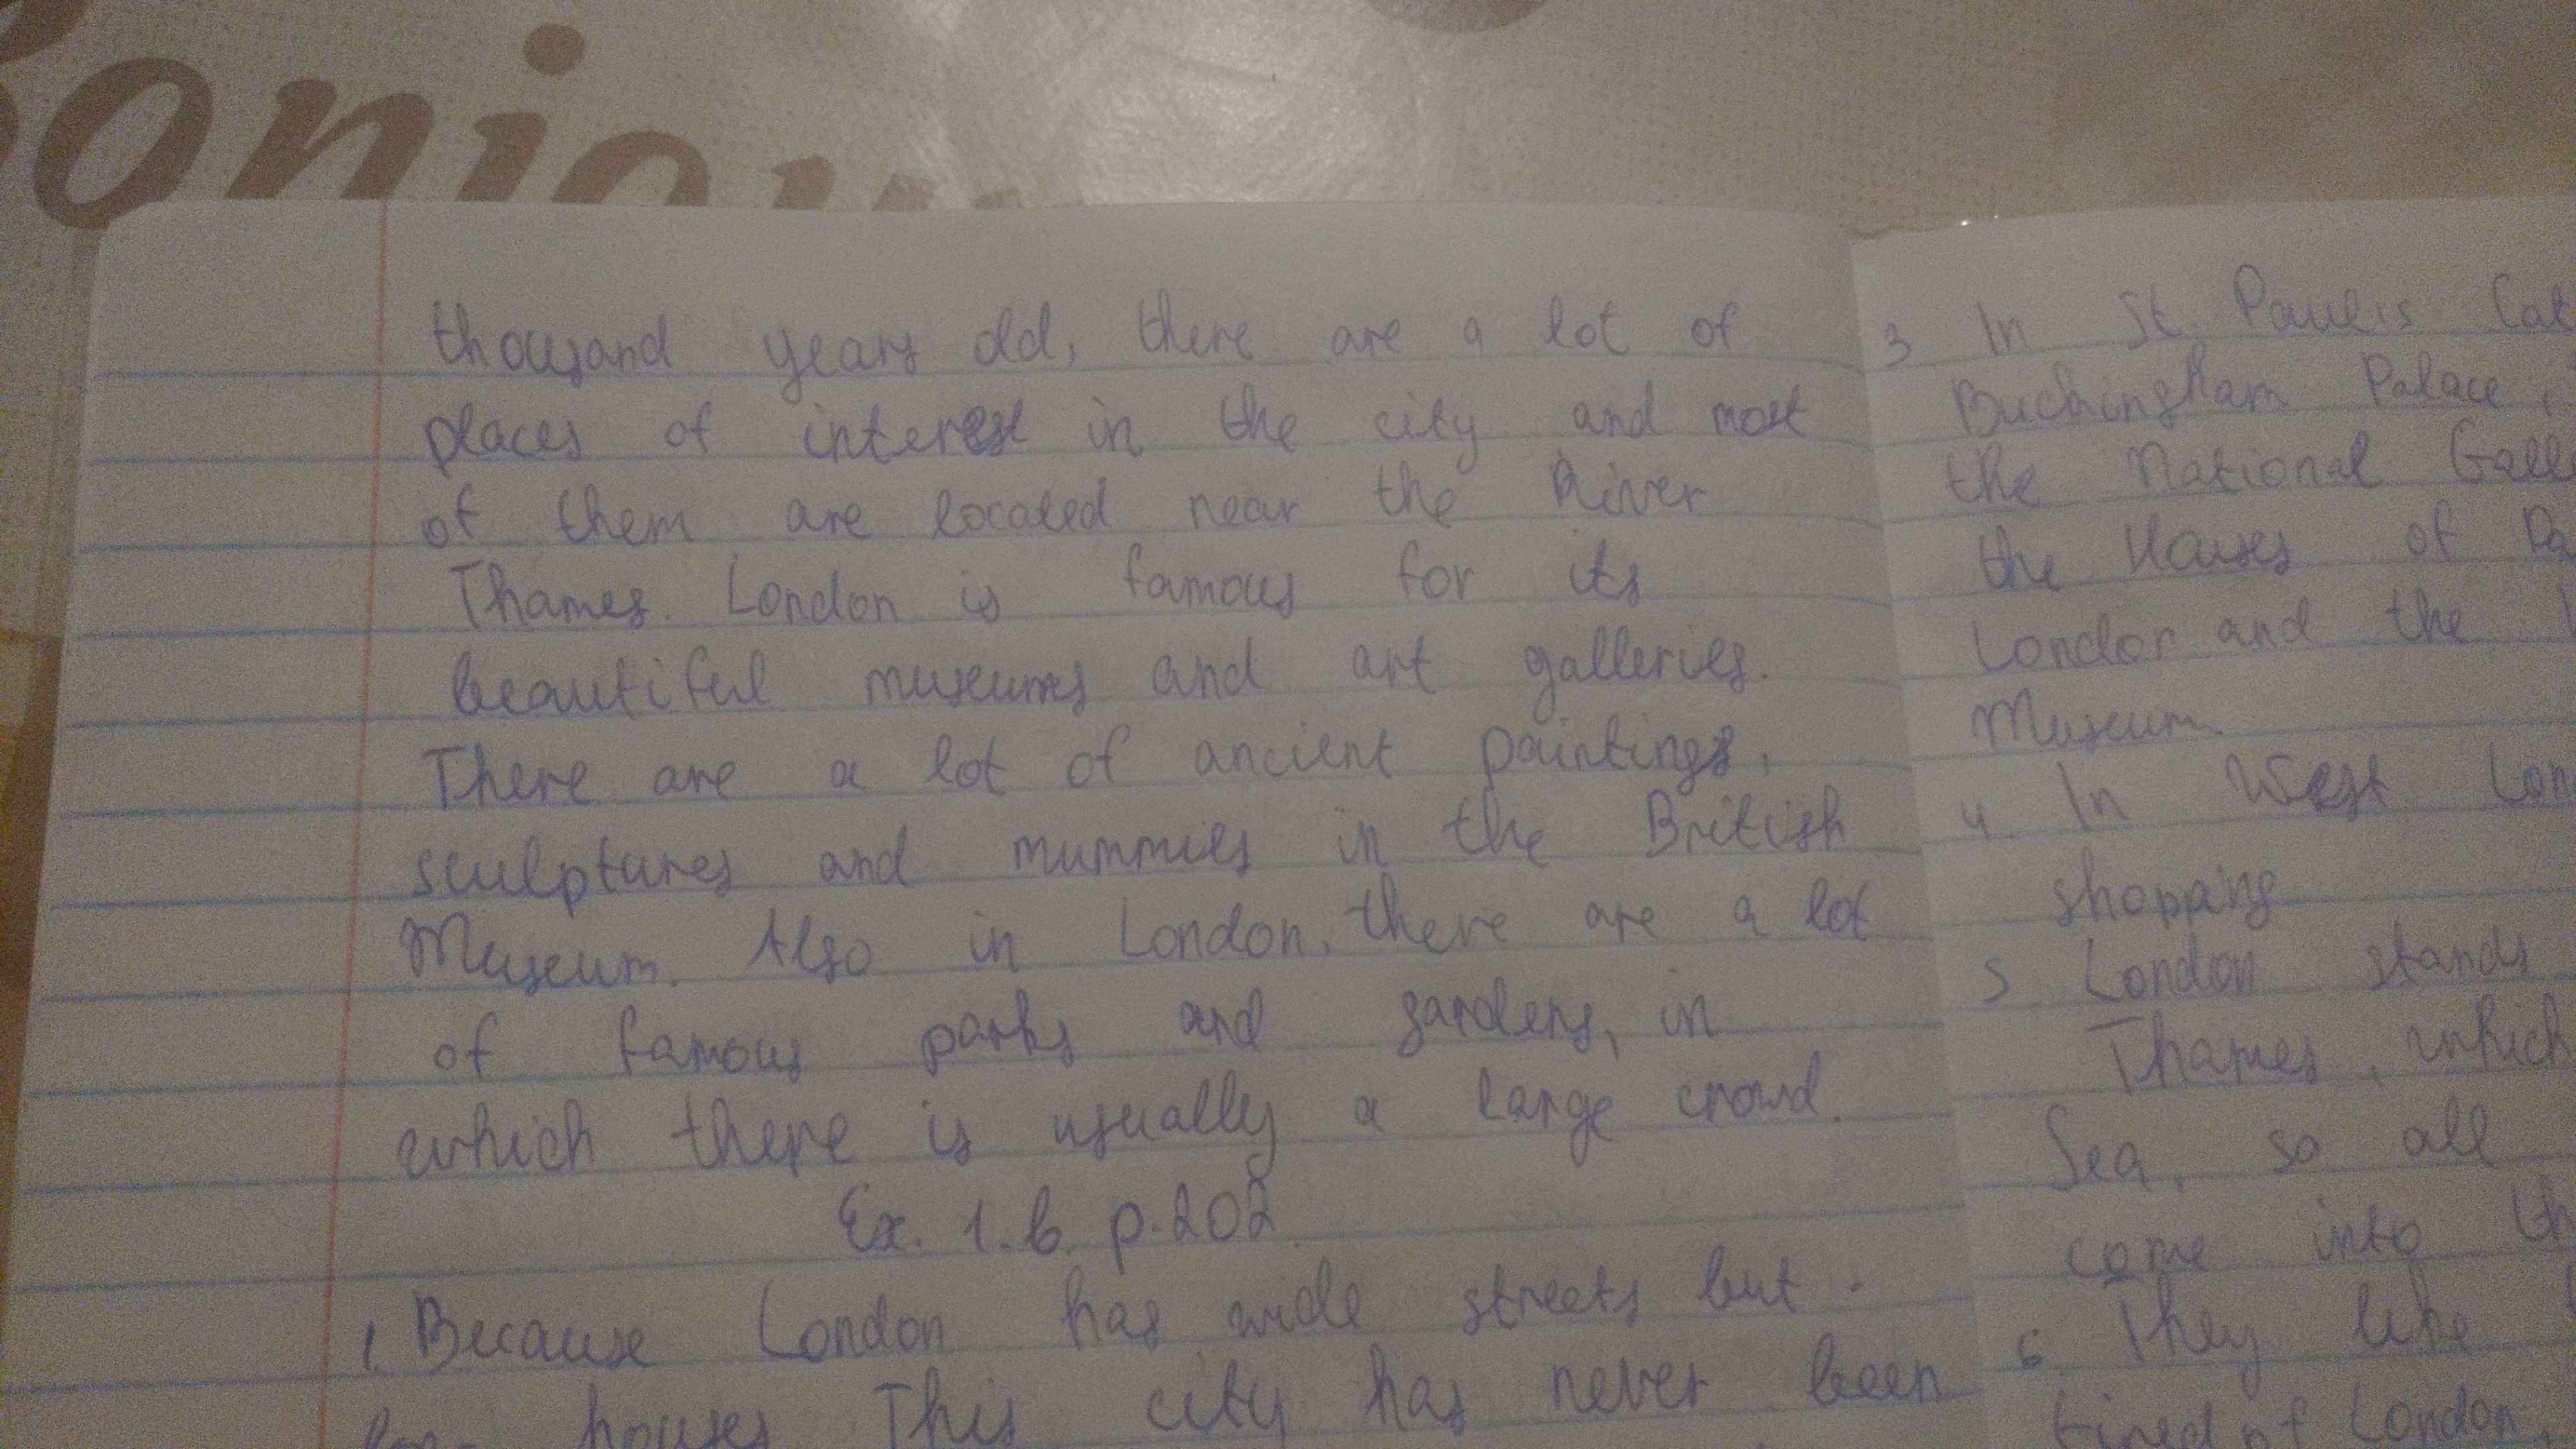 thousand years old, there are a lot of
places of interest in the city and most
of them are located near the River
Thames. London is famous for its
beautiful museums and art galleries.
There are a lot of ancient paintings,
sculptures and mummies in the British
Museum. Also in London, there are a lot
of famous parks and gardens, in
which there is usually a large crowd.
Ex. 1.b. p.202.
1. Because London has wide streets but
houses This city has never been
3 In St. Paul's
Buckingham Palace,
the National
the Houses of
London and the
Museum.
4. In West
shopping
5 London stands
Thames, which
Sea, so all
come into
6 They like
tired of London,